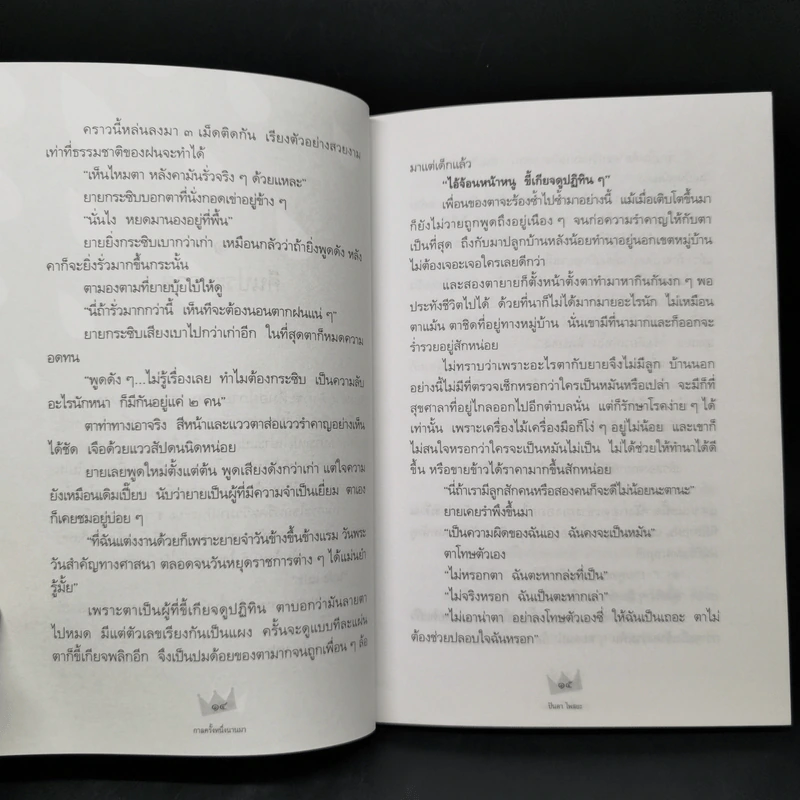 คราวนี้หล่นลงมา ๓ เม็ดติดกัน เรียงตัวอย่างสวยงาม
เท่าที่ธรรมชาติของฝนจะทำได้
"เห็นไหมตา หลังคามันรั่วจริง ๆ ด้วยแหละ"
ยายกระซิบบอกตาที่นั่งกอดเข่าอยู่ข้าง ๆ
"นั่นไง หยดมานองอยู่ที่พื้น"
ยายยิ่งกระซิบเบากว่าเก่า เหมือนกลัวว่าถ้ายิ่งพูดดัง หลัง
คาก็จะยิ่งรั่วมากขึ้นกระนั้น
ตามองตามที่ยายบุ้ยใบ้ให้ดู
"นี่ถ้ารั่วมากกว่านี้ เห็นทีจะต้องนอนตากฝนแน่ ๆ"
ยายกระซิบเสียงเบาไปกว่าเก่าอีก ในที่สุดตาก็หมดความ
อดทน
"พูดดัง ๆ...ไม่รู้เรื่องเลย ทำไมต้องกระซิบ เป็นความลับ
อะไรนักหนา ก็มีกันอยู่แค่ ๒ คน"
ตาท่าทางเอาจริง สีหน้าและแววตาส่อแววรำคาญอย่างเห็น
ได้ชัด เจือด้วยแววสัปดนนิดหน่อย
ยายเลยพูดใหม่ตั้งแต่ต้น พูดเสียงดังกว่าเก่า แต่ใจความ
ยังเหมือนเดิมเปี๊ยบ นับว่ายายเป็นผู้ที่มีความจำเป็นเยี่ยม ตาเอง
ก็เคยชมอยู่บ่อย ๆ
"ที่ฉันแต่งงานด้วยก็เพราะยายจำวันข้างขึ้นข้างแรม วันพระ
วันสำคัญทางศาสนา ตลอดจนวันหยุดราชการต่าง ๆ ได้แม่นยำ
รู้มั้ย"
เพราะตาเป็นผู้ที่ขี้เกียจดูปฏิทิน ตาบอกว่ามันลายตา
ไปหมด มีแต่ตัวเลขเรียงกันเป็นแผง ครั้นจะดูแบบทีละแผ่น
ตาก็ขี้เกียจพลิกอีก จึงเป็นปมด้อยของตามากจนถูกเพื่อน ๆ ล้อ
๑๔
กาลครั้งหนึ่งนานมา
มาแต่เด็กแล้ว
"ไอ้จ้อนหน้าหนู ขี้เกียจดูปฏิทิน ๆ"
เพื่อนของตาจะร้องซ้ำไปซ้ำมาอย่างนี้ แม้เมื่อเติบโตขึ้นมา
ก็ยังไม่วายถูกพูดถึงอยู่เนือง ๆ จนก่อความรำคาญให้กับตา
เป็นที่สุด ถึงกับมาปลูกบ้านหลังน้อยทำนาอยู่นอกเขตหมู่บ้าน
ไม่ต้องเจอะเจอใครเลยดีกว่า
และสองตายายก็ตั้งหน้าตั้งตาทำมาหากินกันงก ๆ พอ
ประทังชีวิตไปได้ ด้วยที่นาก็ไม่ได้มากมายอะไรนัก ไม่เหมือน
ตาแม้น ตาชิดที่อยู่ทางหมู่บ้าน นั่นเขามีที่นามากและก็ออกจะ
ร่ำรวยอยู่สักหน่อย
ไม่ทราบว่าเพราะอะไรตากับยายจึงไม่มีลูก บ้านนอก
อย่างนี้ไม่มีที่ตรวจเช็กหรอกว่าใครเป็นหมันหรือเปล่า จะมีก็ที่
สุขศาลาที่อยู่ไกลออกไปอีกตำบลนั่น แต่ก็รักษาโรคง่าย ๆ ได้
เท่านั้น เพราะเครื่องไม้เครื่องมือก็โง่ ๆ อยู่ไม่น้อย และเขาก็
ไม่สนใจหรอกว่าใครจะเป็นหมันไม่เป็น ไม่ได้ช่วยให้ทำนาได้ดี
ขึ้น หรือขายข้าวได้ราคามากขึ้นสักหน่อย
"นี่ถ้าเรามีลูกสักคนหรือสองคนก็จะดีไม่น้อยนะตานะ"
ยายเคยรำพึงขึ้นมา
"เป็นความผิดของฉันเอง ฉันคงจะเป็นหมัน"
ตาโทษตัวเอง
"ไม่หรอกตา ฉันตะหากล่ะที่เป็น"
"ไม่จริงหรอก ฉันเป็นตะหากเล่า"
"ไม่เอาน่าตา อย่าลงโทษตัวเองซี่ ให้ฉันเป็นเถอะ ตาไม่
ต้องช่วยปลอบใจฉันหรอก"
๑๕
ปินดา โพสยะ